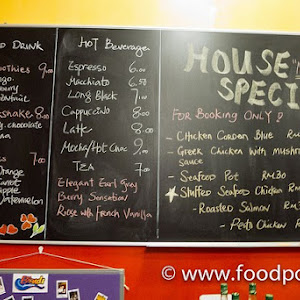 D DRINK
oothies 9.00
ango.
berry
8.00
chocolate
7.00
Orange
Carrot
Apple
Watermelon
HOT Beverage
Espresso 6.00
Macchiato 6.50
Long Black 7.00
Cappuccino 8.00
Latte 8.00
Mocha/Hot Choc 9.00
TEA 7.00
Elegant Earl Grey
Berry Sensation
Rose with French Vanilla
HOUSE
SPECI
FOR Booking ONLY!
- CHicken Cordon Blue RM
- Greek Chicken with Mushro
Sauce
- Seafood Pot RM30
Stuffed Seafood Chicken RM
- Roasted Salmon RM
- Pesto Chicken RM
© www.foodpo